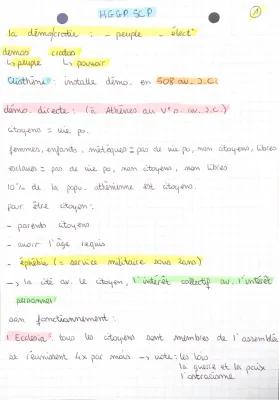 HGGP SCP
1
la démocratie : - peuple - élect°
demos cratos
↳ peuple ↳ pouvoir
Clisthène : installe démo. en 508 av. J.C.
démo. directe : (à Athènes au V° s. av. J.C.)
citoyens = vie po.
femmes, enfants, métèques = pas de vie po, non citoyens, libres
esclaves = pas de vie po, non citoyens, non libres
10% de la popu. athénienne est citoyens.
pour être citoyen :
- parents citoyens
- avoir l'âge requis
- éphébie (= service militaire sous 2ans)
→ la cité av. le citoyen, l'intérêt collectif av. l'intérêt
personnel
son fonctionnement :
l'Ecclesia : tous les citoyens sont membres de l'assemblée
se réunissent 4x par mois → vote : les lois
la guerre et la paix
l'ostracisme